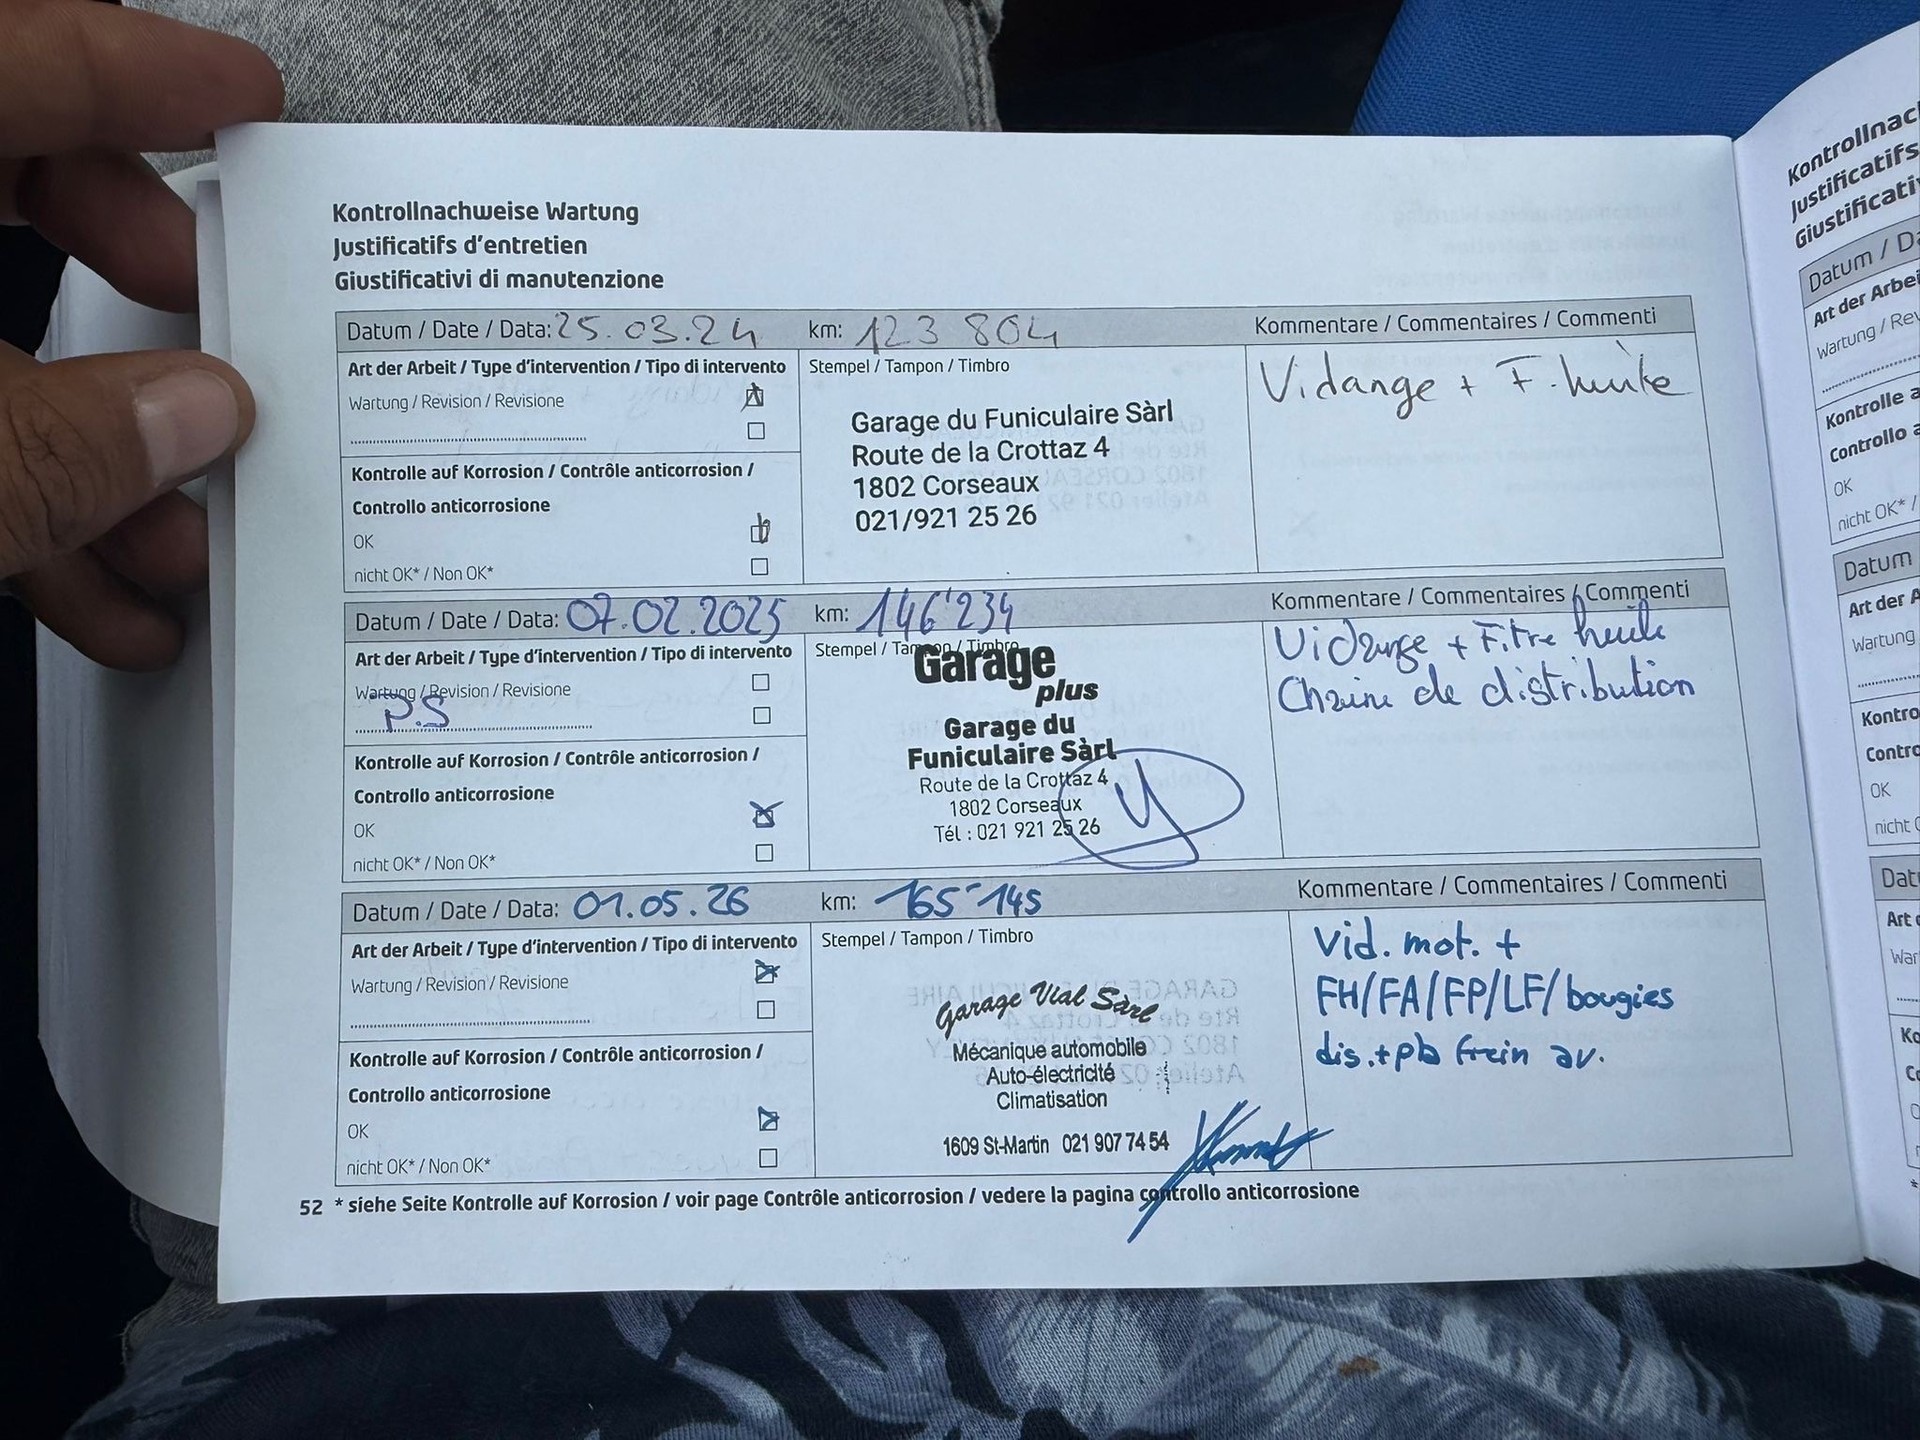 Kontrollnachweise Wartung
Justificatifs d'entretien
Giustificativi di manutenzione
Datum / Date / Data: 25.03.24 km: 123 804 Kommentare / Commentaires / Commenti
Art der Arbeit / Type d'intervention / Tipo di intervento
Stempel / Tampon / Timbro
Wartung / Revision / Revisione
Vidange + F. huile
Garage du Funiculaire Sàrl
Route de la Crottaz 4
1802 Corseaux
021/921 25 26
Kontrolle auf Korrosion / Contrôle anticorrosion /
Controllo anticorrosione
OK
nicht OK* / Non OK*
Datum / Date / Data: 07.02.2025 km: 146'234 Kommentare / Commentaires / Commenti
Art der Arbeit / Type d'intervention / Tipo di intervento
Stempel / Tampon / Timbro
Wartung / Revision / Revisione
P.S
Garage
plus
Garage du
Funiculaire Sàrl
Route de la Crottaz 4
1802 Corseaux
Tél : 021 921 25 26
Vidange + Fitre huile
Chaine de distribution
Kontrolle auf Korrosion / Contrôle anticorrosion /
Controllo anticorrosione
OK
nicht OK* / Non OK*
Datum / Date / Data: 01.05.26 km: 165'145 Kommentare / Commentaires / Commenti
Art der Arbeit / Type d'intervention / Tipo di intervento
Stempel / Tampon / Timbro
Wartung / Revision / Revisione
Garage Vial Sàrl
Mécanique automobile
Auto-électricité
Climatisation
1609 St-Martin 021 907 74 54
Vid. mot. +
FH/FA/FP/LF/bougies
dis.+pb frein av.
Kontrolle auf Korrosion / Contrôle anticorrosion /
Controllo anticorrosione
OK
nicht OK* / Non OK*
52 * siehe Seite Kontrolle auf Korrosion / voir page Contrôle anticorrosion / vedere la pagina controllo anticorrosione
Datum
Art der
Wartung
OK
Datum
Art der
Wartung
OK
nicht